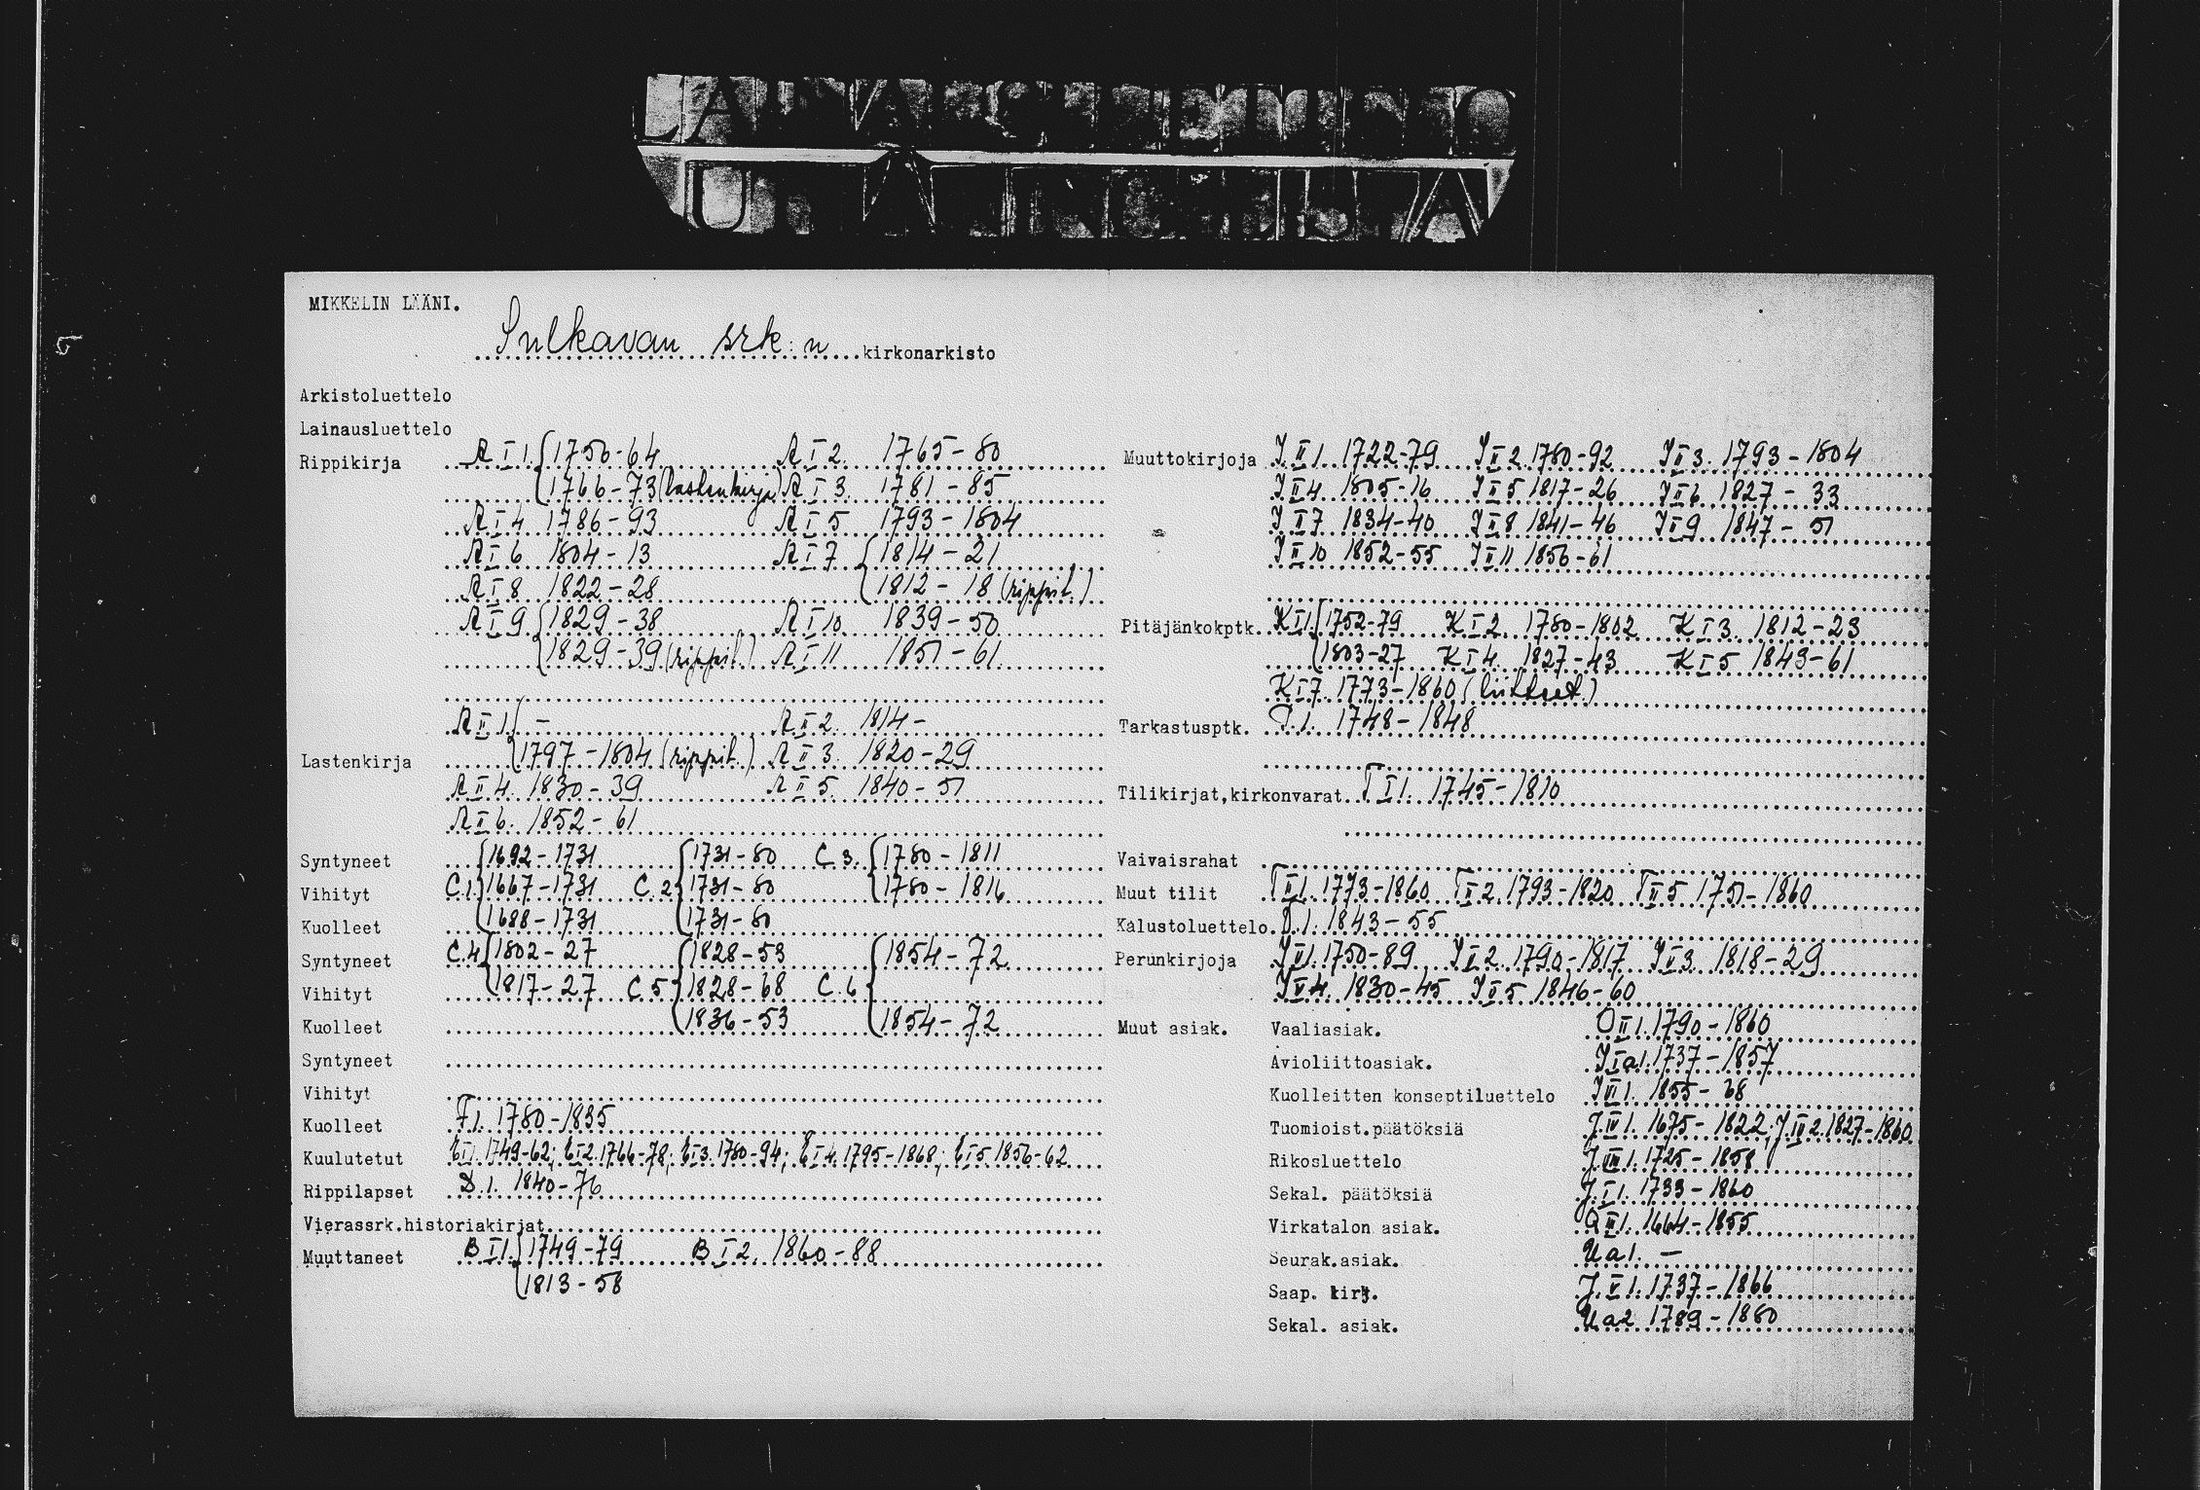 MIKKELIN LÄÄNI.
Sulkavan srk:n kirkonarkisto
Arkistoluettelo
Lainausluettelo
Rippikirja A I 1. 1750-64 A I 2. 1765-80
1766-73 (lastenkirja) A I 3. 1781-85
A I 4 1786-93 A I 5 1793-1804
A I 6 1804-13 A I 7 1814-21
A I 8 1822-28 1812-18 (rippil.)
A I 9 1829-38 A I 10 1839-50
1829-39 (rippil.) A I 11 1851-61
A II 1. - A II 2. 1814-
Lastenkirja 1797-1804 (rippil.) A II 3. 1820-29
A II 4. 1830-39 A II 5. 1840-51
A II 6. 1852-61
Syntyneet 1692-1731 1731-80 C.3. 1780-1811
Vihityt C.1. 1667-1731 C.2 1731-80 1780-1816
Kuolleet 1688-1731 1731-80
Syntyneet C.4 1802-27 1828-53 1854-72
Vihityt 1817-27 C.5 1828-68 C.6
Kuolleet 1836-53 1854-72
Syntyneet
Vihityt
Kuolleet F1. 1780-1835
Kuulutetut E I 1. 1749-62; E I 2. 1766-78; E I 3. 1780-94; E I 4. 1795-1868; E I 5. 1856-62
Rippilapset D.1. 1840-76
Vierassrk.historiakirjat
Muuttaneet B I 1. 1749-79 B I 2. 1860-88
1813-58
Muuttokirjoja J II 1. 1722-79 J II 2 1780-92 J II 3. 1793-1804
J II 4 1805-16 J II 5 1817-26 J II 6. 1827-33
J II 7 1834-40 J II 8 1841-46 J II 9 1847-51
J II 10 1852-55 J II 11 1856-61
Pitäjänkokptk. K I 1. 1752-79 K I 2. 1780-1802 K I 3. 1812-23
1803-27 K I 4. 1827-43 K I 5 1849-61
K I 7. 1773-1860 (liitteet.)
Tarkastusptk. 1. 1748-1848
Tilikirjat,kirkonvarat T I 1. 1745-1810
Vaivaisrahat
Muut tilit T II 1. 1773-1860 T II 2. 1793-1820 T II 5 1751-1860
Kalustoluettelo 1. 1843-55
Perunkirjoja 1. 1750-89 2. 1790-1817 3. 1818-29
4. 1830-45 5. 1846-60
Muut asiak. Vaaliasiak. O II 1. 1790-1860
Avioliittoasiak. J I a1. 1737-1857
Kuolleitten konseptiluettelo 1. 1855-68
Tuomioist.päätöksiä J IV 1. 1675-1822; J IV 2. 1827-1860
Rikosluettelo 1. 1725-1858
Sekal. päätöksiä J I 1. 1733-1860
Virkatalon asiak. O III 1. 1664-1855
Seurak.asiak. U a 1. -
Saap. kirj. J. V 1. 1737-1866
Sekal. asiak. U a 2 1789-1880